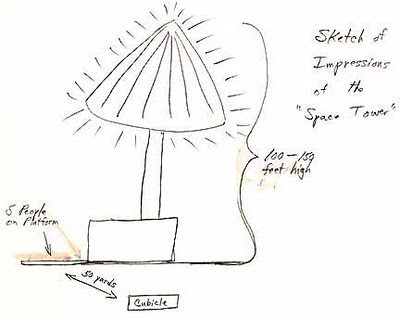 Sketch of
Impressions
of the
"Space Tower"
100-150
feet high
5 People
on Platform
50 yards
Cubicle